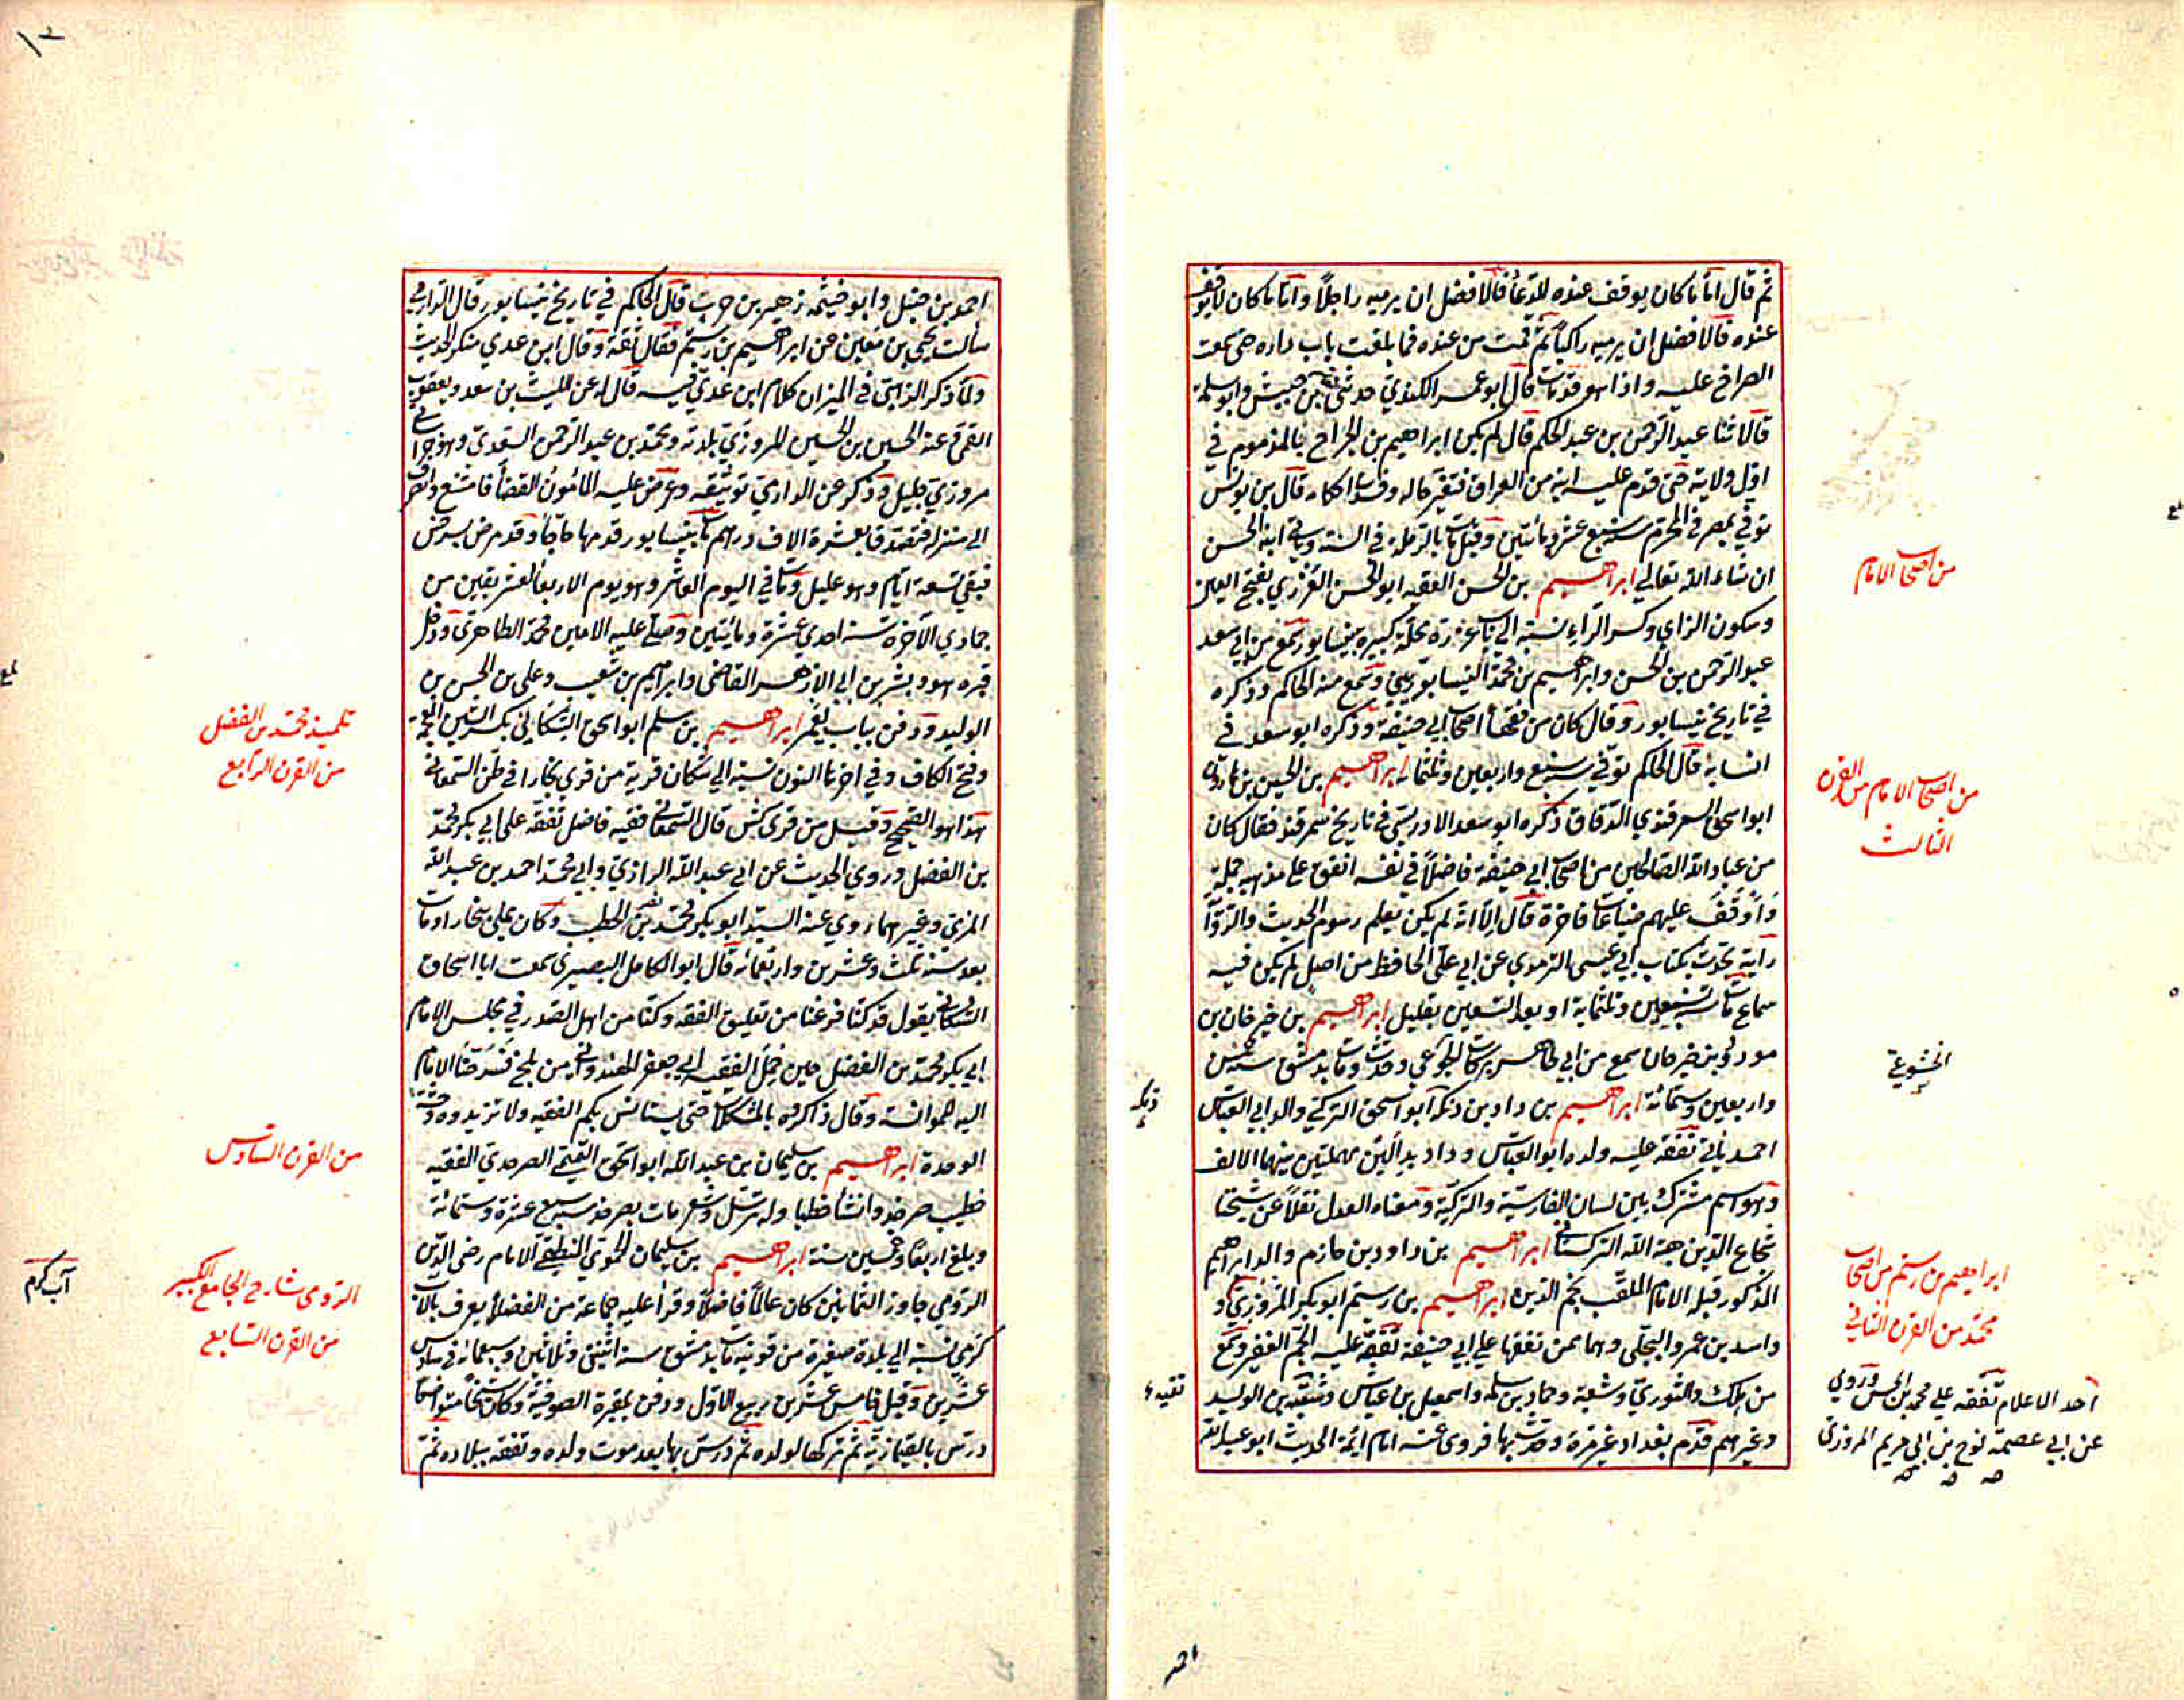 ثم قال اما ما كان يوقف عنده للدعأ فالافضل ان يرميه راجلاً واما ما كان لا يوقف
عنده فالافضل ان يرميه راكباً ثم قمت من عنده فما بلغت باب داره حتى سمعت
الصراخ عليه واذا هو قد مات قال ابو عمر الكندي حدثني بن حبيش وابو سلمة
قالا ثنا عبد الرحمن بن عبد الحكم قال لم يكن ابراهيم بن الجراح بالمذموم في
اول ولايته حتى قدم عليه ابنه من العراق فتغير حاله وفسدت احكامه قال بن يونس
توفي بمصر في المحرم سنة سبع عشر ومائتين وقيل مات بالرملة في السنة وياتي ابنه الحسن
ان شاء الله تعالى ابراهيم بن الحسن الفقيه ابو الحسن العزري بفتح العين
وسكون الزاي وكسر الراء نسبة الى باب عزرة محلة كبيرة بنيسابور سمع من ابي سعد
عبد الرحمن بن الحسن وابراهيم بن محمد النيسابوريين وسمع منه الحاكم وذكره
في تاريخ نيسابور وقال كان من فقهأ اصحاب ابي حنيفة وذكره ابو سعد في
انسابه قال الحاكم توفي سنة سبع واربعين وثلثمائة ابراهيم بن الحسين بن هارون
ابو اسحق السمرقندي الدقاق ذكره ابو سعد الادريسي في تاريخ سمرقند فقال كان
من عباد الله الصالحين من اصحاب ابي حنيفة فاضلاً في نفسه انفق على مذهبه جملة
واوقف عليهم ضياعات فاخرة قال الا انه لم يكن يعلم رسوم الحديث والرواة
رايته يحدث بكتاب ابي عيسى الترمذي عن ابي علي الحافظ من اصل لم يكن فيه
سماع مات سنة تسعين وثلثماية او بعد التسعين بقليل ابراهيم بن خير خان بن
مودود بن خير خان سمع من ابي طاهر بركات الخشوعي وحدث ومات بدمشق سنة خمس
واربعين وستمائة ابراهيم بن داد بن دنكة ابو اسحق التركي والد ابي العباس
احمد ياتي تفقه عليه ولده ابو العباس وداد بدالين مهملتين بينهما الالف
وهو اسم مشترك بين لسان الفارسية والتركية ومعناه العدل نقلاً عن شيخنا
شجاع الدين هبة الله التركستاني ابراهيم بن داود بن حازم والد ابراهيم
المذكور قبله الامام الملقب نجم الدين ابراهيم بن رستم ابو بكر المروزي
واسد بن عمرو البجلي وهما ممن تفقها على ابي حنيفة تفقه عليه الجم الغفير وسمع
من مالك والثوري وشعبة وحماد بن سلمة واسمعيل بن عياش وبقية بن الوليد
وغيرهم قدم بغداد غير مرة وحدث بها فروى عنه امام ائمة الحديث ابو عبد الله
من اصحاب الامام
من اصحاب الامام من القرن
الثالث
الخشوعي
دنكة
ابراهيم بن رستم من اصحاب
محمد من القرن الثاني
احد الاعلام تفقه على محمد بن الحسن وروى
عن ابي عصمة نوح بن ابي مريم المروزي
بقية
احمد
١٢
احمد بن حنبل وابو خيثمة زهير بن حرب قال الحاكم في تاريخ نيسابور قال الدارمي
سألت يحيى بن معين عن ابراهيم بن رستم فقال ثقة وقال ابن عدي منكر الحديث
ولما ذكر الذهبي في الميزان كلام ابن عدي فيه قال له عن الليث بن سعد ويعقوب
القمي عنه الحسين بن الحسين المروزي بلديه ومحمد بن عبد الرحمن السعدي وهو خراساني
مروزي جليل وذكر عن الدارمي توثيقه وعرض عليه المأمون القضأ فامتنع وانصرف
الى منزله فتصدق بعشرة الاف درهم مات بنيسابور قدمها حاجأ وقد مرض بسرخس
فبقي تسعة ايام وهو عليل ومات في اليوم العاشر وهو يوم الاربعأ لعشر بقين من
جمادي الآخرة سنة احدي عشرة ومائتين وصلى عليه الامير محمد الطاهري ودخل
قبره هو وبشر بن ابي الازهر القاضي وابراهيم بن شعيب وعلي بن الحسن بن
الوليد ودفن بباب معمر ابراهيم بن سلم ابو اسحق الشكاني بكسر الشين المعجمة
وفتح الكاف وفي اخرها النون نسبة الى شكان قرية من قرى بخارا في ظن السمعاني
هذا هو الصحيح وقيل من قرى كش قال السمعاني فقيه فاضل تفقه على ابي بكر محمد
بن الفضل وروي الحديث عن ابي عبد الله الرازي وابي محمد احمد بن عبد الله
المزني وغيرهما روي عنه السيد ابو بكر محمد بن علي الخطيب وكان يملي ببخارا ومات
بعد سنة ثلث وعشرين واربعمائة قال ابو الكامل البصيري سمعت ابا اسحاق
الشكاني يقول قد كنا فرغنا من تعليق الفقه وكنا من اهل الصدر في مجلس الامام
ابي بكر محمد بن الفضل حين حمل الفقيه ابي جعفر الهندواني من بلخ فسرحنا الامام
اليه لمؤانسته وقال ذاكروه بالمشكلات حتى يستانس بكم الفقيه ولا تزيدوه وحشة
الوحدة ابراهيم بن سليمان بن عبد الله ابو اسحق التميمي الصرخدي الفقيه
خطيب صرخد وانشأ خطبا وله ترسل وشعر مات بصرخد سنة سبع عشرة وستمائة
وبلغ اربعا وخمسين سنة ابراهيم بن سليمان الحموي المنطيقي الامام رضي الدين
الرومي جاوز الثمانين كان عالماً فاضلاً وقرأ عليه جماعة من الفضلأ يعرف بالآب
كرمي نسبة الى بلدة صغيرة من قونية مات بدمشق سنة اثنتي وثلاثين وسبعمائة في سادس
عشرين وقيل خامس عشرين ربيع الاول ودفن بمقبرة الصوفية وكان شيخاً متواضعاً
درس بالقيمازية ثم تركها لولده ثم درس بها بعد موت ولده وتفقه ببلاده ثم
تلميذ محمد بن الفضل
من القرن الرابع
من القرن السادس
الرومى شارح الجامع الكبير
من القرن السابع
آب كرم